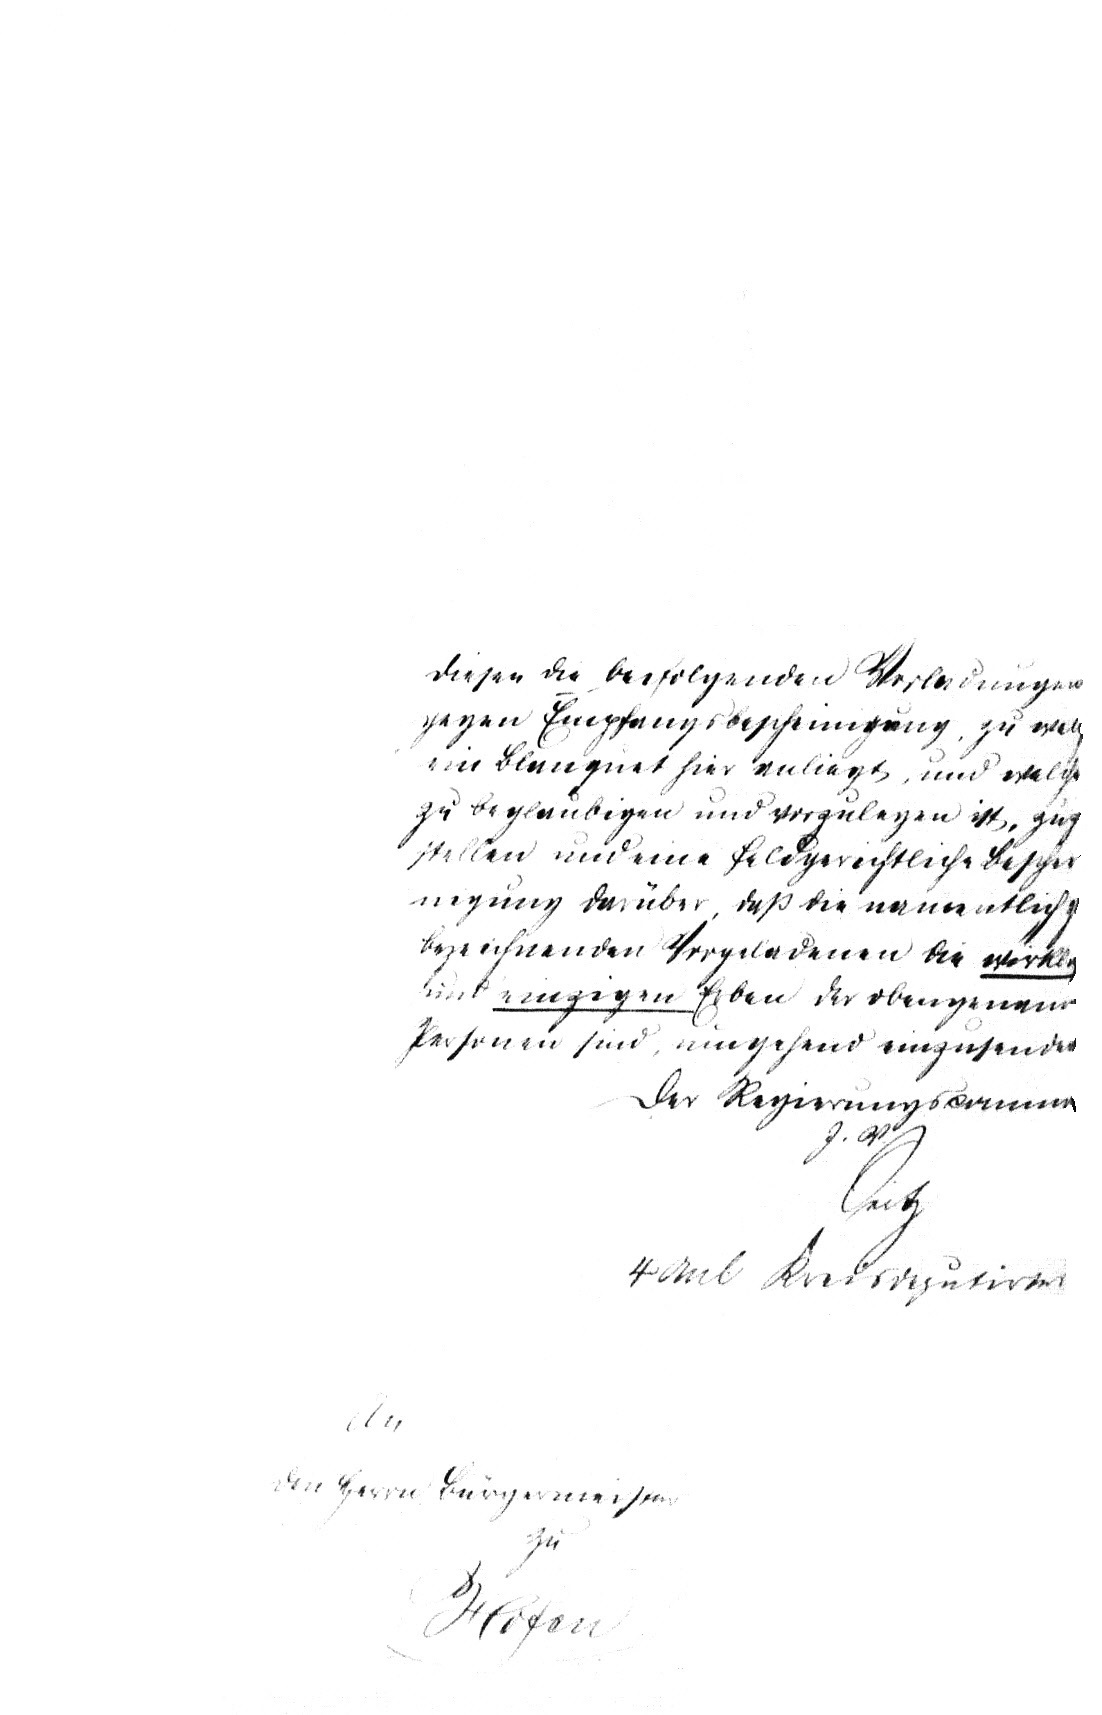 diesen die beifolgenden Vorladungen
gegen Empfangsbescheinigung, zu welch
ein Blanquet hier anliegt, und welche
zu beglaubigen und vorzulegen ist, zuz
stellen und eine feldgerichtliche Beschei
nigung darüber, daß die namentlich z
bezeichnenden Vorgeladenen die wirkli
und einzigen Erben der obengenann
Personen sind, umgehend einzusenden
Der Regierungscomm
J. V.
4 Anl Kreisdeputirter
An
den Herrn Bürgermeister
zu
Höfen